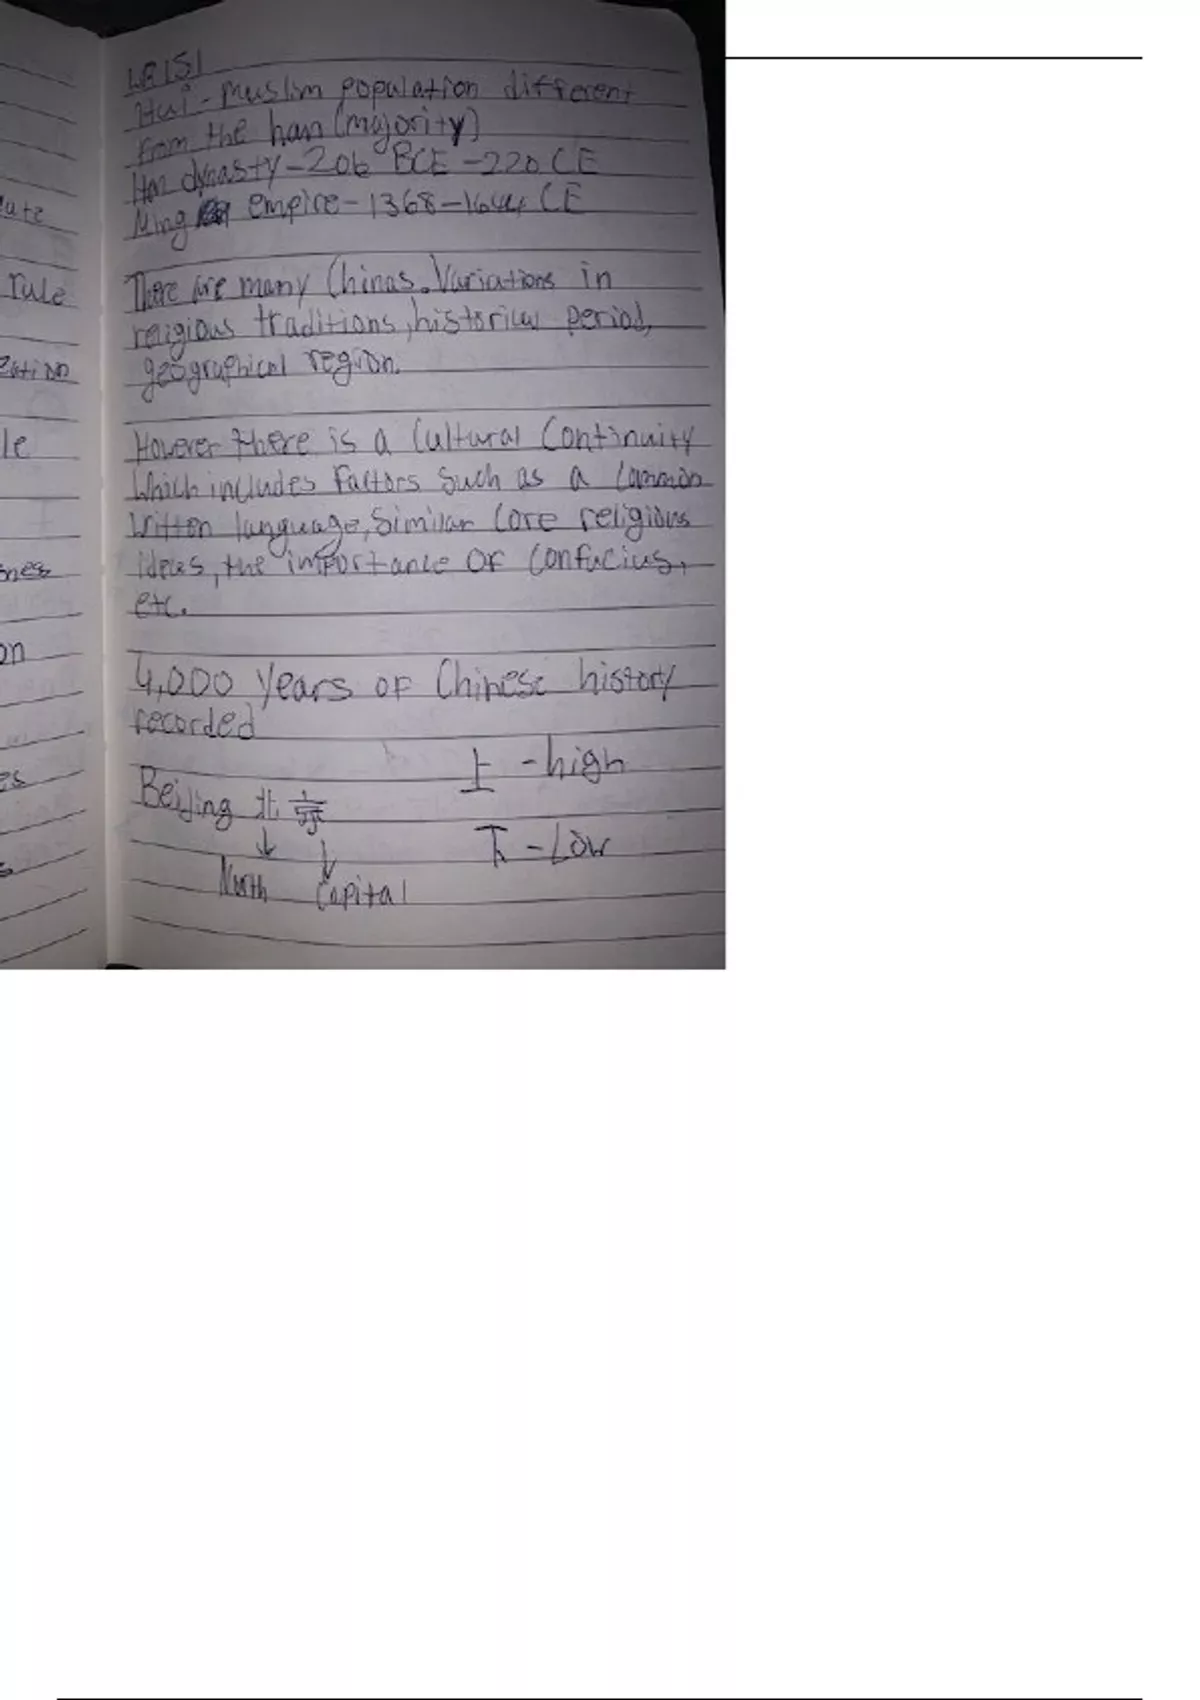 Hui - Muslim population different
from the han (majority)
Han dynasty - 206 BCE - 220 CE
Ming empire - 1368 - 1644 CE
There are many Chinas. Variations in
religious traditions, historical period,
geographical region.
However there is a Cultural Continuity
Which includes factors such as a common
written language, Similar Core religious
ideas, the importance of Confucius,
etc.
4,000 years of Chinese history
recorded
上 - high
Beijing 北京
下 - Low
North Capital
rule
le
on
es